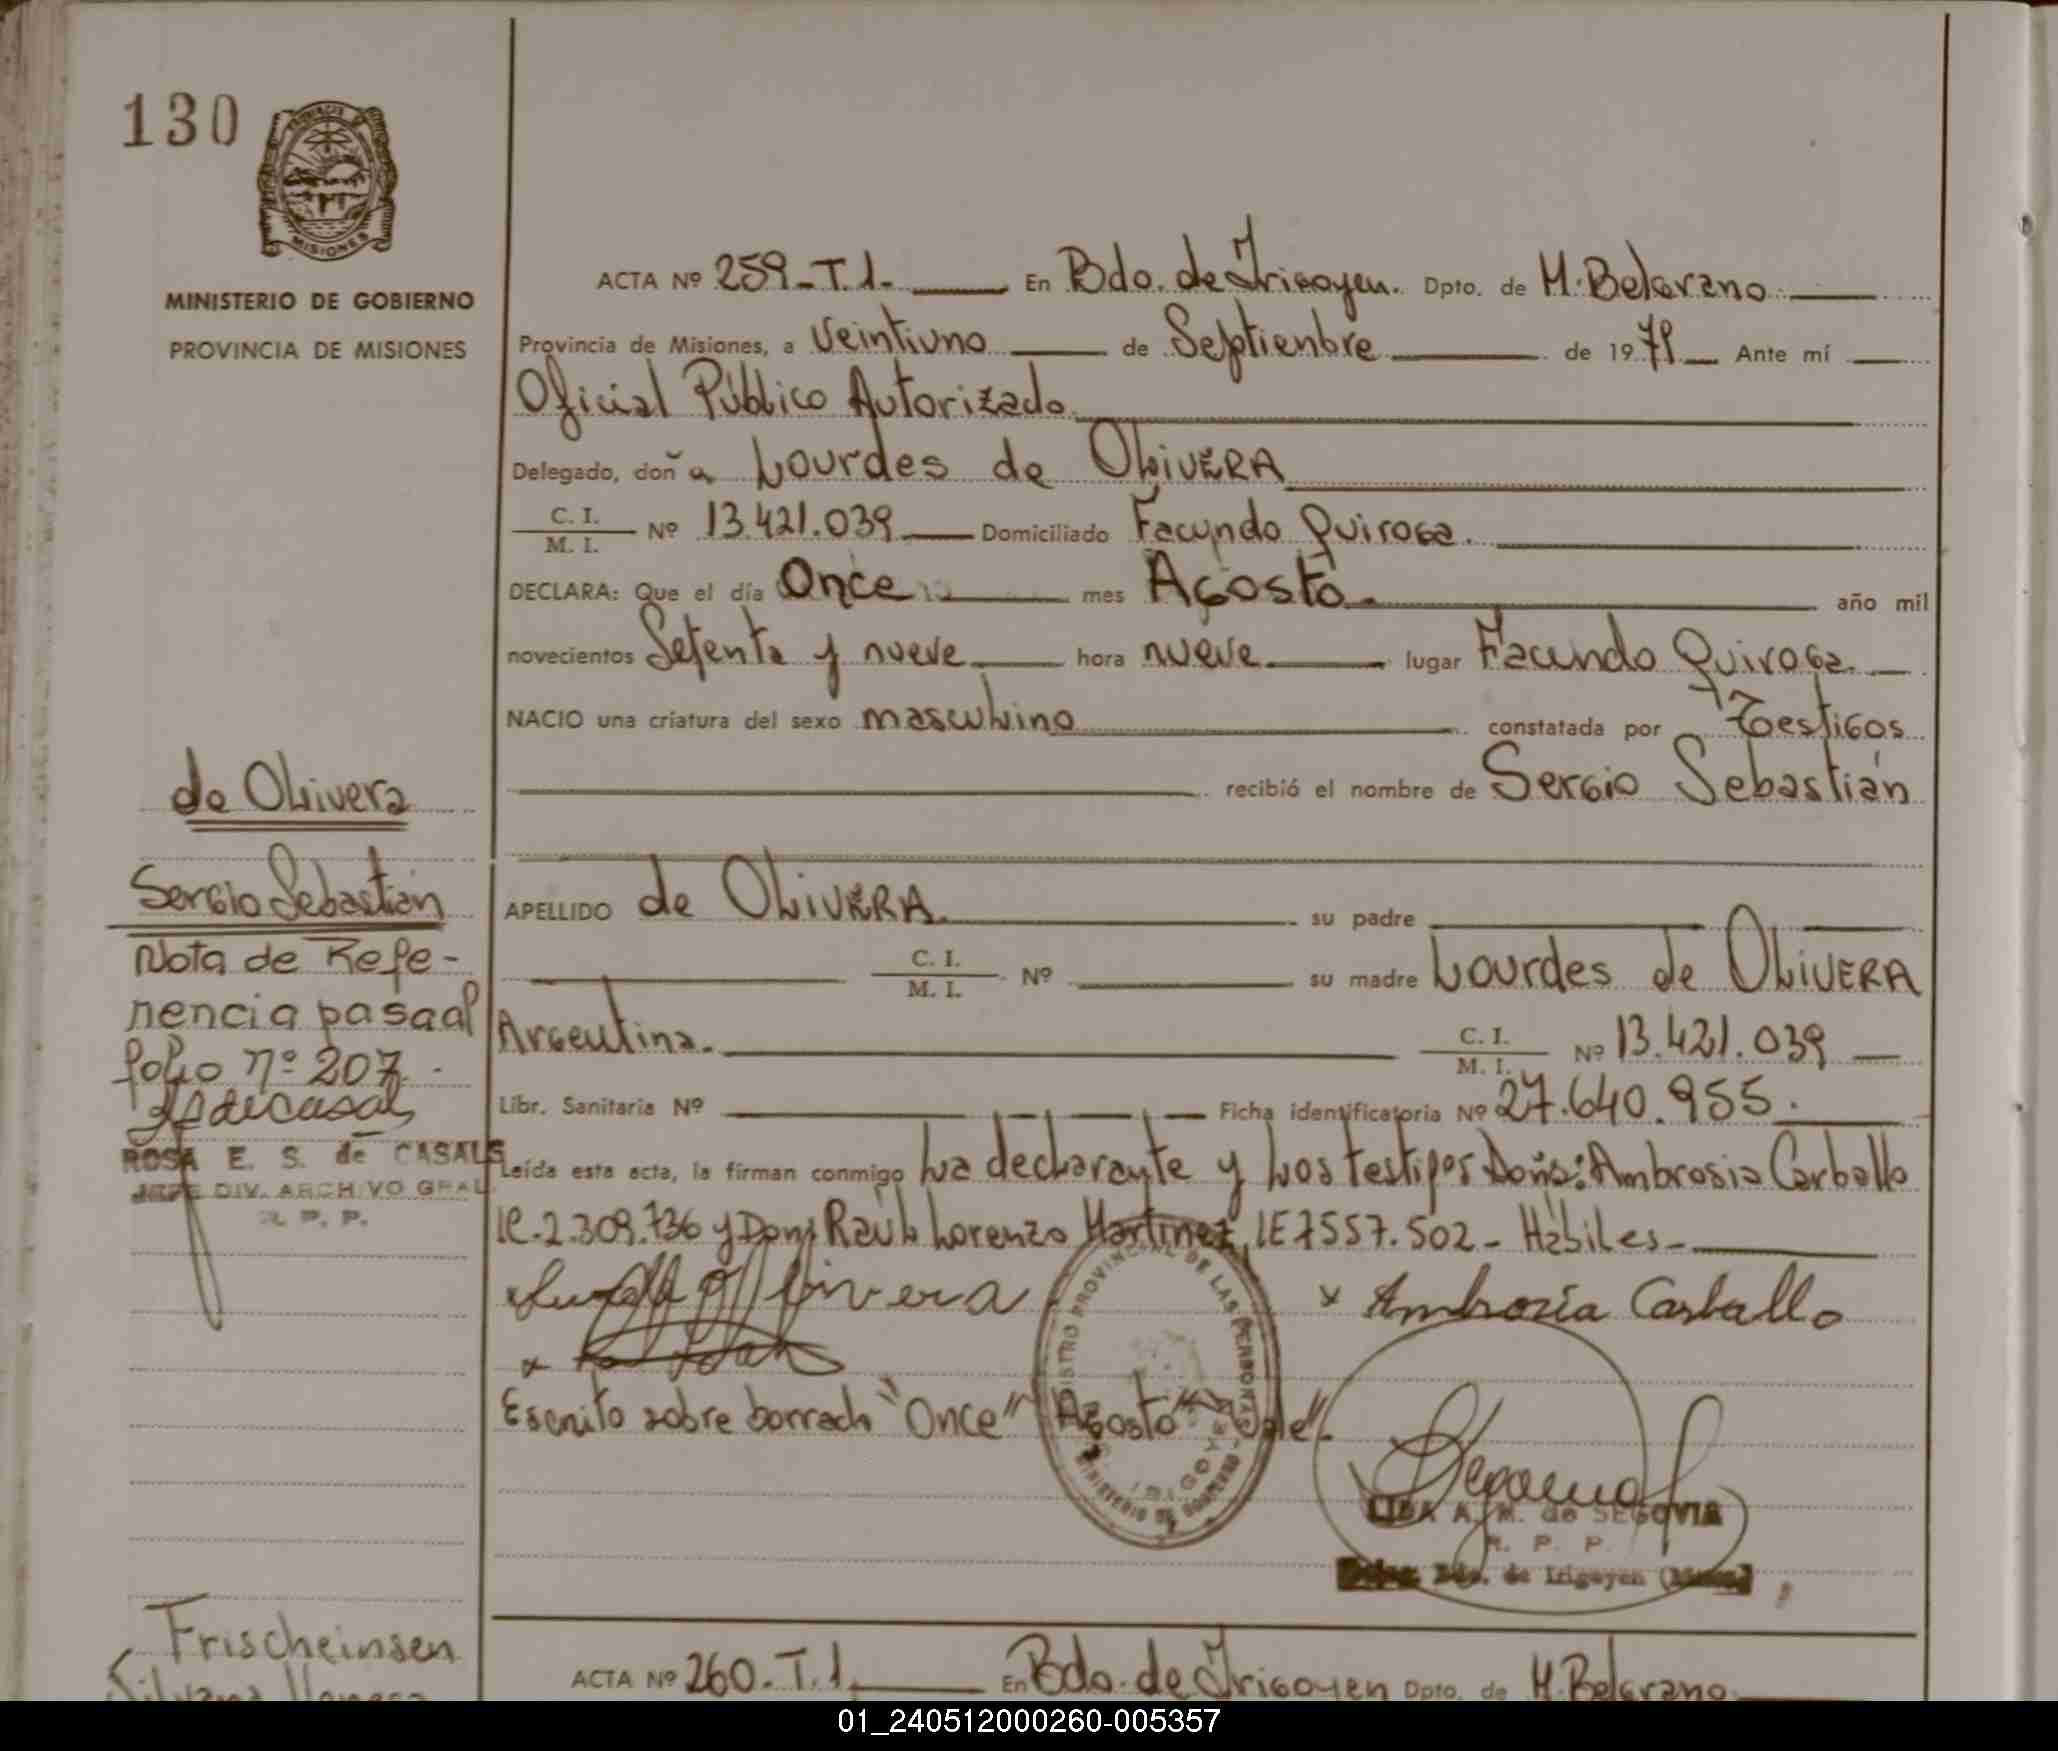 130
PROVINCIA DE
MISIONES
MINISTERIO DE GOBIERNO
PROVINCIA DE MISIONES
ACTA Nº 259-T.1.- En Bdo. de Irigoyen. Dpto. de M. Belgrano.
Provincia de Misiones, a Veintiuno de Septienbre de 1979 Ante mí
Oficial Público Autorizado
Delegado, doña Lourdes de OLIVERA
C. I.
M. I.
Nº 13.421.039 Domiciliado Facundo Quiroga.
DECLARA: Que el día Once mes Agosto. año mil
novecientos Setenta y nueve hora nueve lugar Facundo Quiroga.
NACIO una criatura del sexo masculino constatada por Testigos
recibió el nombre de Sergio Sebastián
APELLIDO de OLIVERA. su padre
C. I.
M. I.
Nº su madre Lourdes de OLIVERA
Argentina. C. I.
M. I.
Nº 13.421.039
Libr. Sanitaria Nº Ficha identificatoria Nº 27.640.955.
Leída esta acta, la firman conmigo La declarante y Los testigos Doña: Ambrosia Carballo
lC.2.309.736 y Don: Raúl Lorenzo Martinez, lE 7557.502- Hábiles-
Olivera
x Ambrozia Carballo
x
Escrito sobre borrado "Once" "Agosto" "Vale".
REGISTRO PROVINCIAL DE LAS PERSONAS
MINISTERIO DE GOBIERNO
IRIGOYEN
LIDA A. M. de SEGOVIA
R. P. P.
Bdo. de Irigoyen
de Olivera
Sergio Sebastián
Nota de Refe-
rencia pasa al
folio nº 207.
ROSA E. S. de CASALS
JEFE DIV. ARCHIVO GRAL
R. P. P.
Frischeinsen
Silvana Vanesa
ACTA Nº 260.T.1 En Bdo. de Irigoyen Dpto. de M. Belgrano
01_240512000260-005357